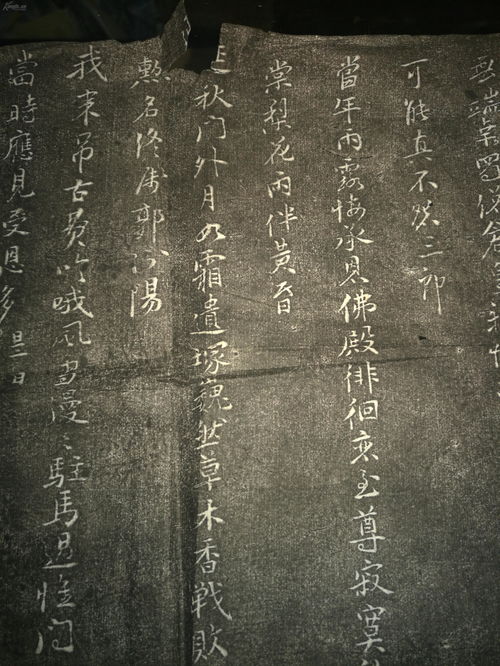 端幸蜀
可能真不三郎
當年雨露悔承恩佛殿徘徊哀至尊寂寞
棠梨花雨伴黃昏
秋門外月如霜遺塚巍然草木香戰敗
名終郭汾陽
我來弔古費吟哦風漫〻駐馬過惟問
當時應見受恩多